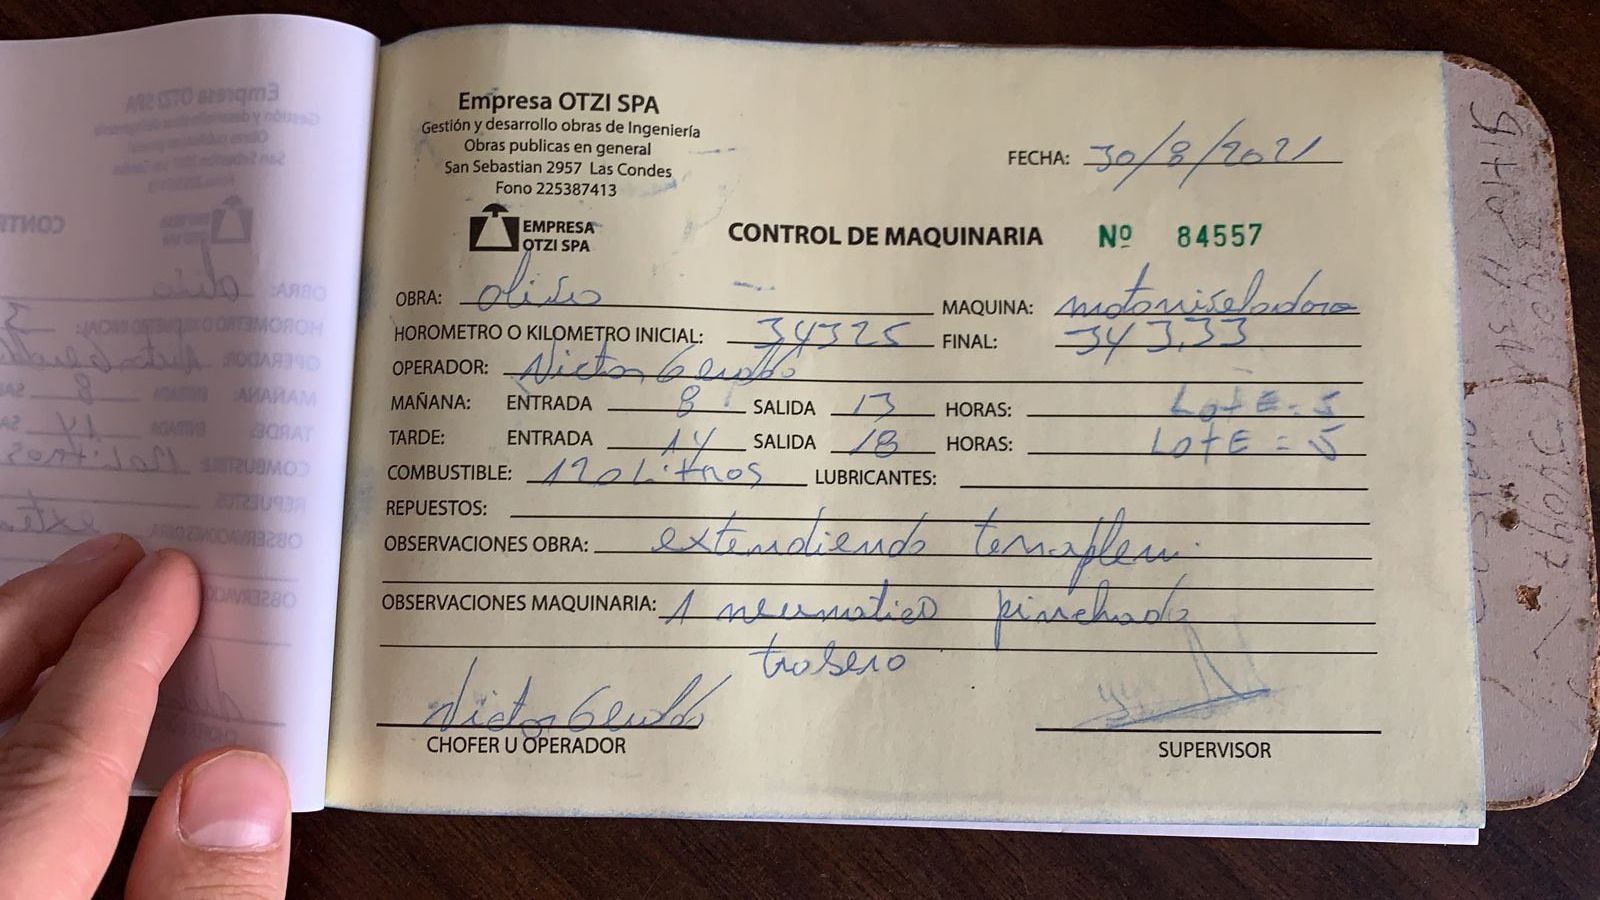 Empresa OTZI SPA
Gestión y desarrollo obras de Ingeniería
Obras publicas en general
San Sebastian 2957 Las Condes
Fono 225387413
EMPRESA
OTZI SPA
FECHA: 30/8/2021
CONTROL DE MAQUINARIA Nº 84557
OBRA: MAQUINA: motoniveladora
HOROMETRO O KILOMETRO INICIAL: 34325 FINAL: 343,33
OPERADOR: Victor
MAÑANA: ENTRADA 8 SALIDA 13 HORAS: LotE = 5
TARDE: ENTRADA 14 SALIDA 18 HORAS: LotE = 5
COMBUSTIBLE: 120 Litros LUBRICANTES:
REPUESTOS:
OBSERVACIONES OBRA: extendiendo terraplen.
OBSERVACIONES MAQUINARIA: 1 neumatico pinchado
trasero
Victor
CHOFER U OPERADOR
SUPERVISOR